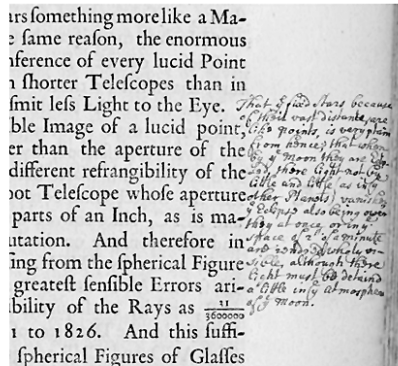 ars something more like a Ma-
e ſame reaſon, the enormous
nference of every lucid Point
n ſhorter Teleſcopes than in
ſmit leſs Light to the Eye.
ble Image of a lucid point,
er than the aperture of the
different refrangibility of the
oot Teleſcope whoſe aperture
parts of an Inch, as is ma-
utation. And therefore in
ſing from the ſpherical Figure
greateſt ſenſible Errors ari-
bility of the Rays as 11/3600000
1 to 1826. And this ſuffi-
ſpherical Figures of Glaſſes
That yͤ fixed Stars because
of their vast distance are
like points, is very plain
from hence; that when
by yͤ Moon they are
and there light not by
little and little as in yͤ
other Planets) vanish
yͤ Eclipse also being over
they at once or in yͤ
space of 2'' of a minute
are
sible, although there
light must be
a little in yͤ Atmosphere
of yͤ Moon.